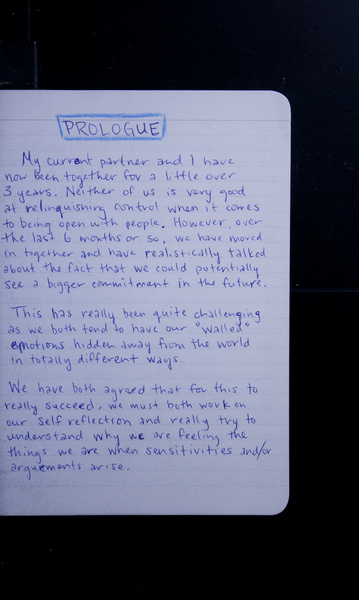 PROLOGUE
My current partner and I have
now been together for a little over
3 years. Neither of us is very good
at relinquishing control when it comes
to being open with people. However, over
the last 6 months or so, we have moved
in together and have realistically talked
about the fact that we could potentially
see a bigger commitment in the future.
This has really been quite challenging
as we both tend to have our "walled"
emotions hidden away from the world
in totally different ways.
We have both agreed that for this to
really succeed, we must both work on
our self reflection and really try to
understand why we are feeling the
things we are when sensitivities and/or
arguements arise.